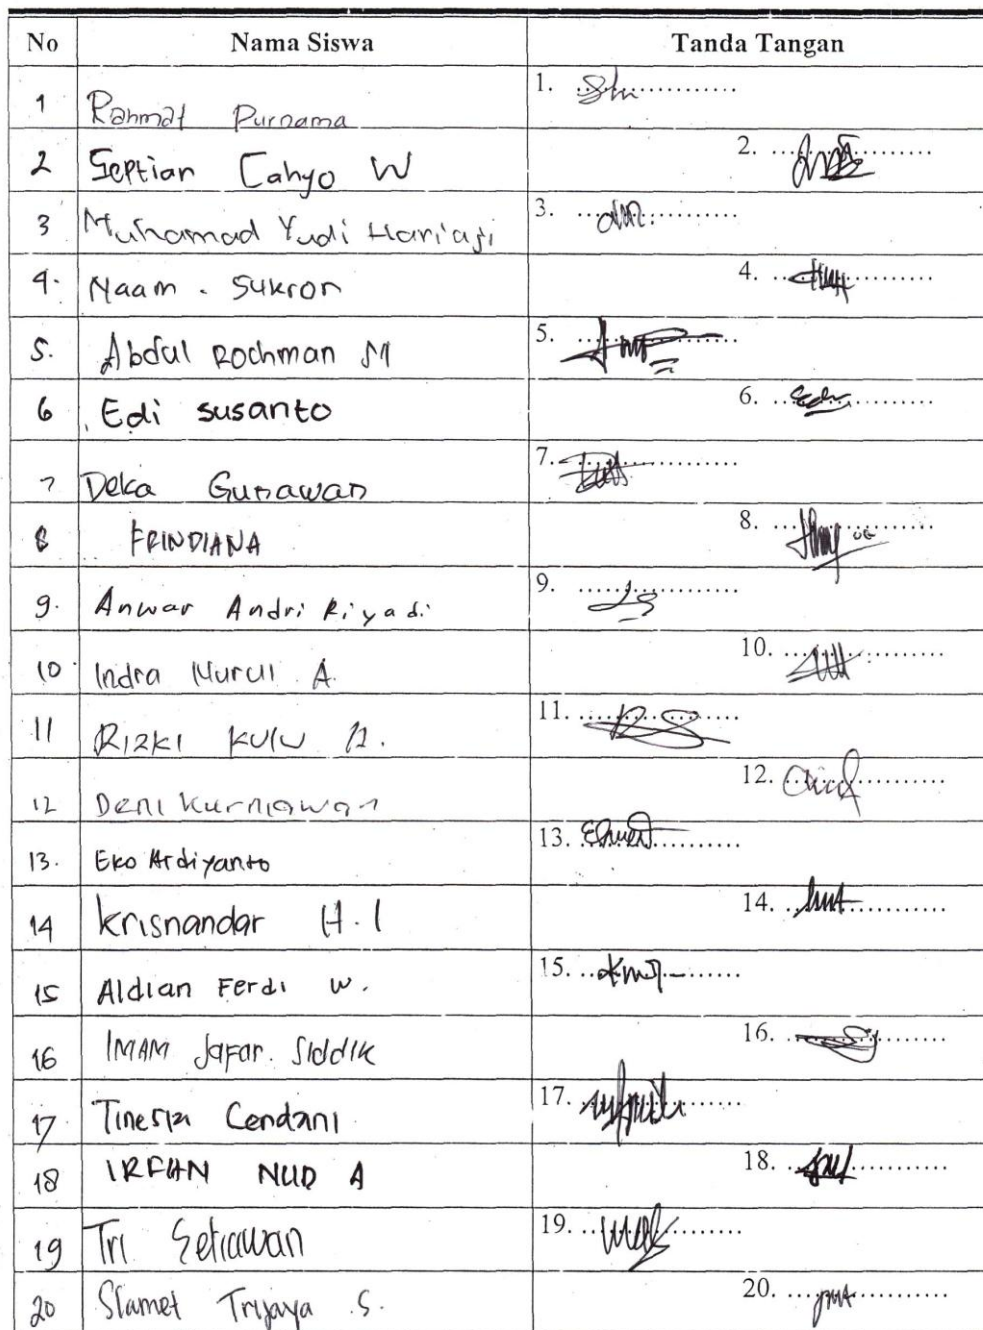 No Nama Siswa Tanda Tangan
1 Rahmat Purnama 1. ..............
2 Septian Cahyo W 2. ..............
3 Muhamad Yudi Hariaji 3. ..............
4. Naam . Sukron 4. ..............
5. Abdul Rochman M 5. ..............
6 Edi Susanto 6. ..............
7 Deka Gunawan 7. ..............
8 FRINDIANA 8. ..............
9. Anwar Andri Riyadi 9. ..............
10 Indra Nurul A. 10. ..............
11 RIZKI 11. ..............
12 Deni Kurniawan 12. ..............
13. Eko Ardiyanto 13. ..............
14 Krisnandar H.I 14. ..............
15 Aldian Ferdi W. 15. ..............
16 IMAM Jafar. Siddik 16. ..............
17 Cendani 17. ..............
18 IRFAN A 18. ..............
19 Tri Setiawan 19. ..............
20 Slamet Trijaya S. 20. ..............